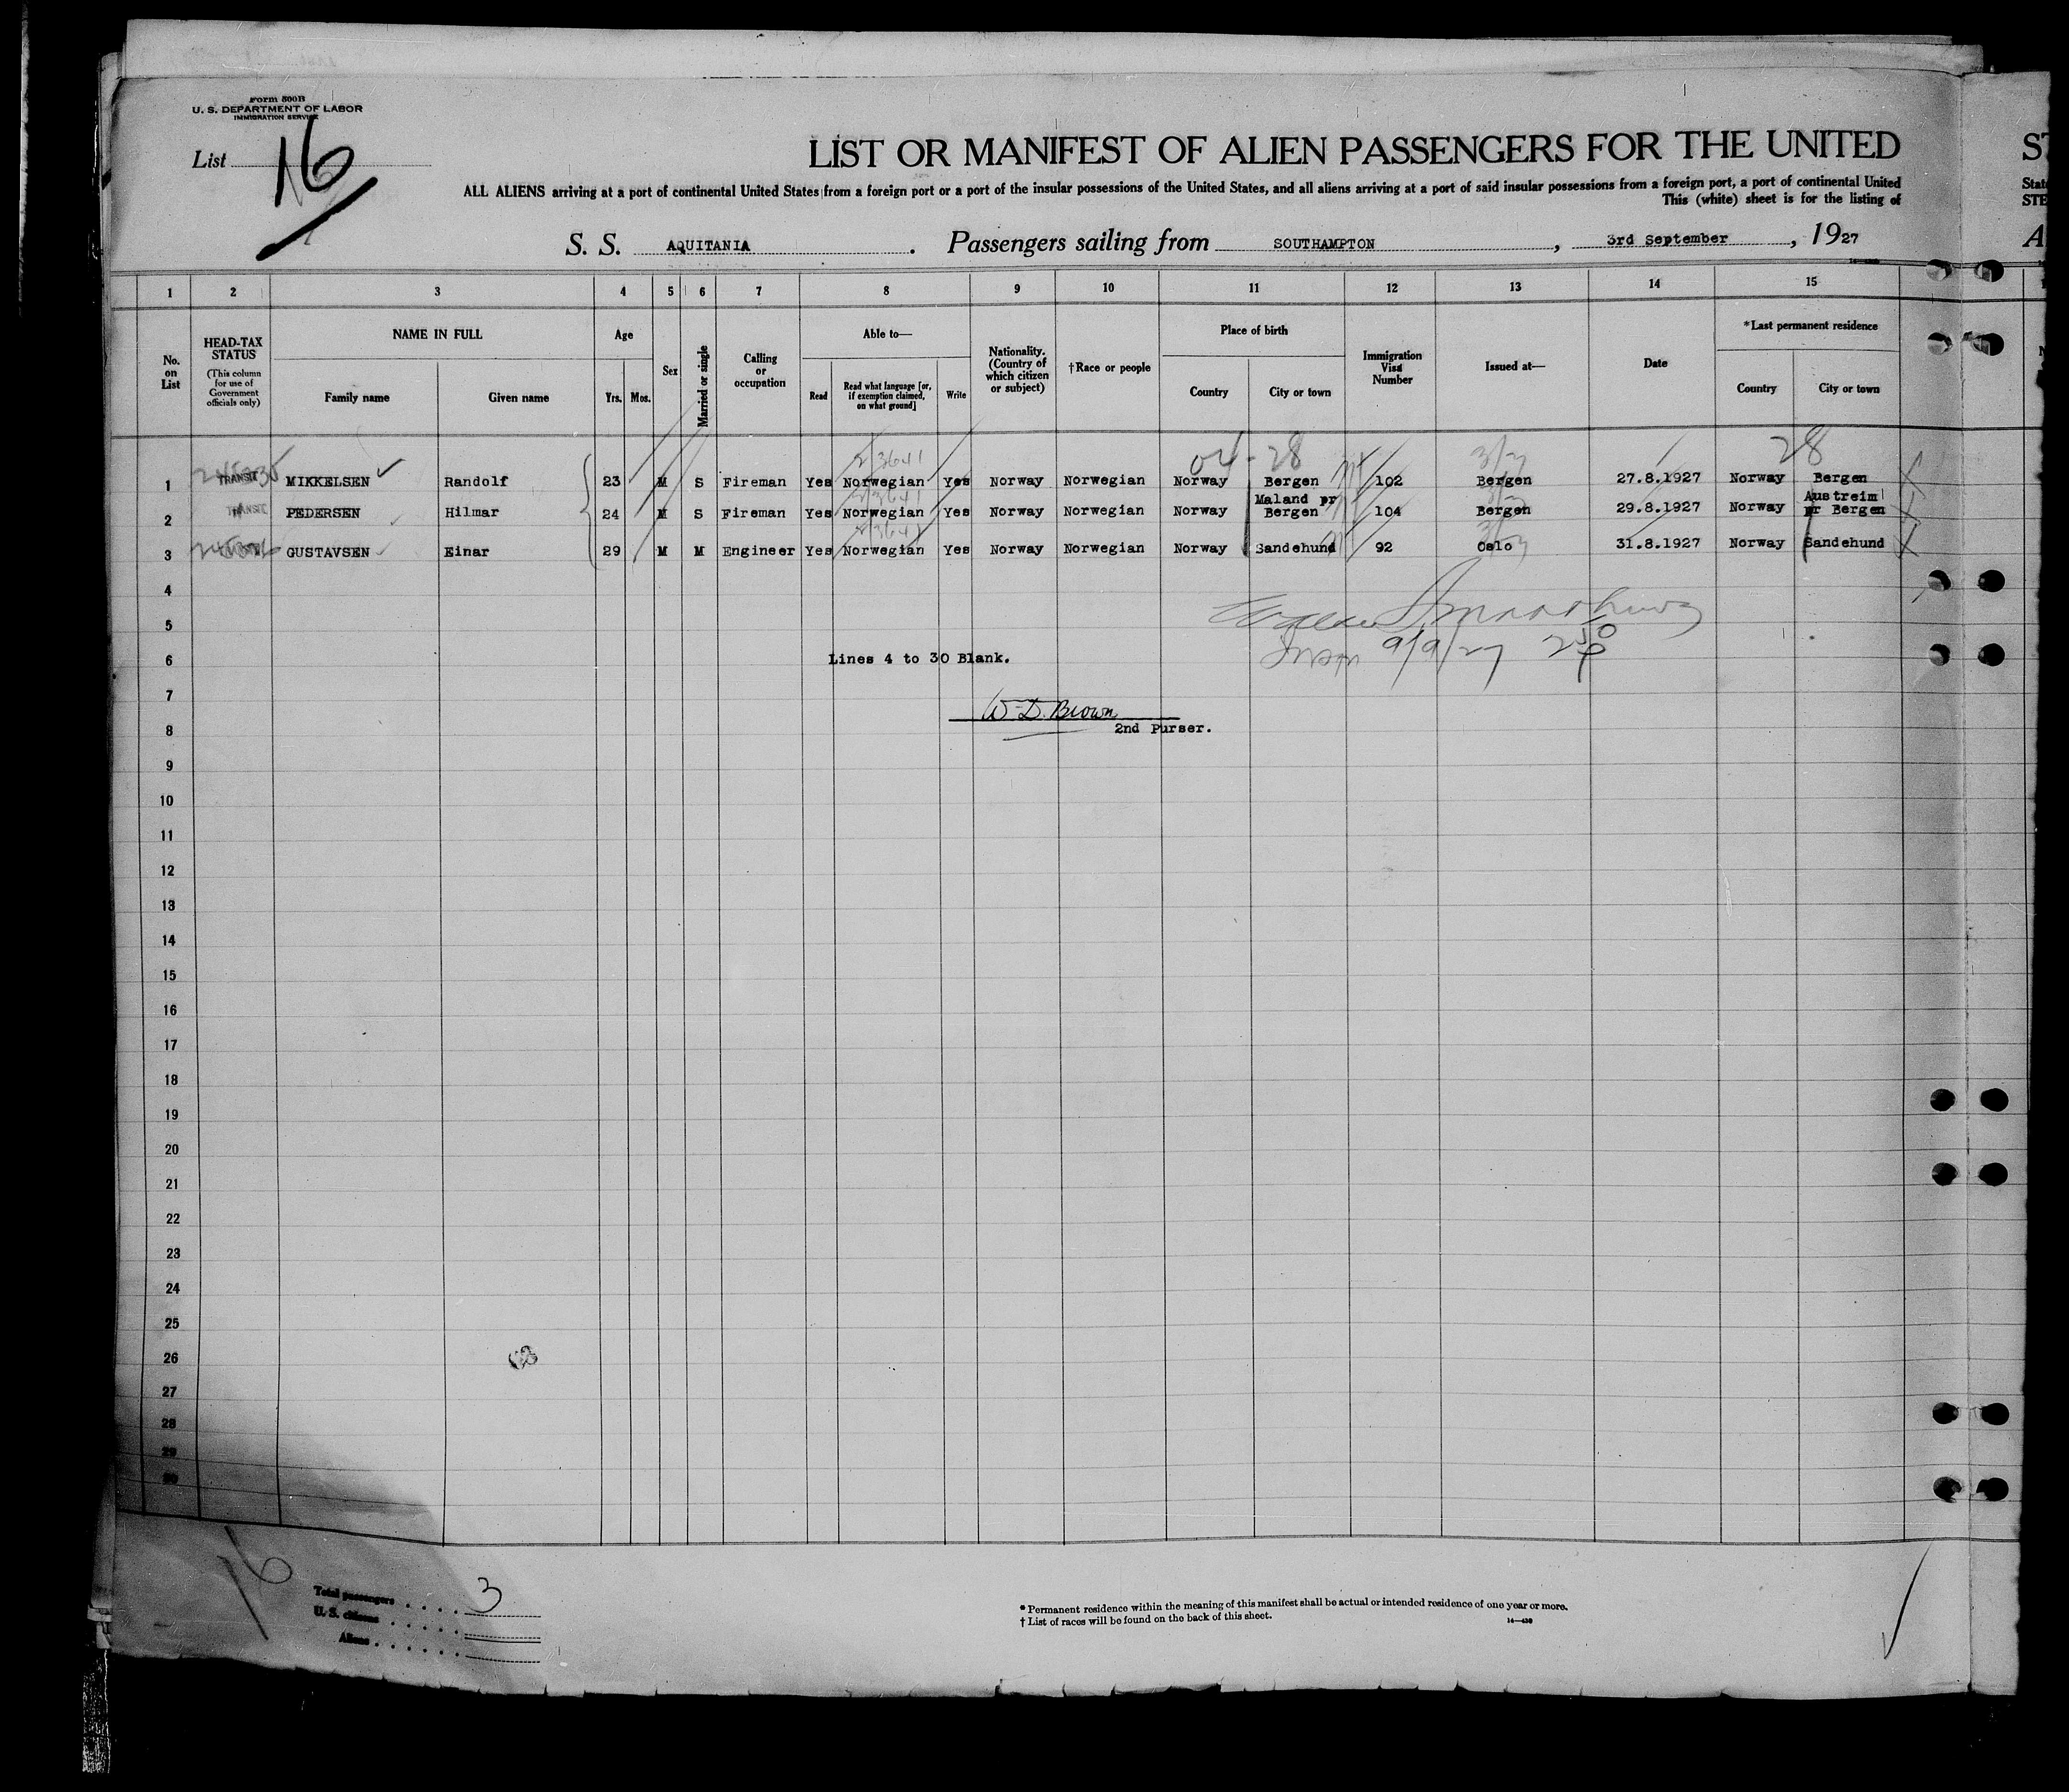 Form 500B
U. S. DEPARTMENT OF LABOR
IMMIGRATION SERVICE
List 16
LIST OR MANIFEST OF ALIEN PASSENGERS FOR THE UNITED
ST
ALL ALIENS arriving at a port of continental United States from a foreign port or a port of the insular possessions of the United States, and all aliens arriving at a port of said insular possessions from a foreign port, a port of continental United
This (white) sheet is for the listing of
S. S. AQUITANIA . Passengers sailing from SOUTHAMPTON , 3rd September , 1927
1 2 3 4 5 6 7 8 9 10 11 12 13 14 15
No. on List
HEAD-TAX STATUS (This column for use of Government officials only)
NAME IN FULL
Family name Given name
Age
Yrs. Mos.
Sex
Married or single
Calling or occupation
Able to—
Read Read what language [or, if exemption claimed, on what ground] Write
Nationality. (Country of which citizen or subject)
†Race or people
Place of birth
Country City or town
Immigration Visa Number
Issued at—
Date
*Last permanent residence
Country City or town
04 - 28 28
1 TRANSIT MIKKELSEN Randolf 23 M S Fireman Yes Norwegian Yes Norway Norwegian Norway Bergen 102 Bergen 27.8.1927 Norway Bergen
2 TRANSIT PEDERSEN Hilmar 24 M S Fireman Yes Norwegian Yes Norway Norwegian Norway Maland pr Bergen 104 Bergen 29.8.1927 Norway Austreim pr Bergen
3 GUSTAVSEN Einar 29 M M Engineer Yes Norwegian Yes Norway Norwegian Norway Sandehund 92 Oslo 31.8.1927 Norway Sandehund
4
5
9/9/27
6 Lines 4 to 30 Blank.
7
W. D. Brown
8 2nd Purser.
9
10
11
12
13
14
15
16
17
18
19
20
21
22
23
24
25
26
27
28
29
30
16
Total passengers . . . . 3
U. S. citizens . . . . .
Aliens . . . . . .
* Permanent residence within the meaning of this manifest shall be actual or intended residence of one year or more.
† List of races will be found on the back of this sheet.